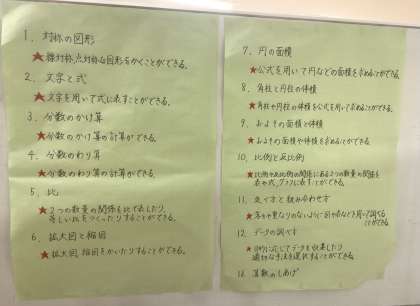 1. 対称の図形
★線対称、点対称な図形をかくことができる。
2. 文字と式
★文字を用いて式に表すことができる。
3. 分数のかけ算
★分数のかけ算の計算ができる。
4. 分数のわり算
★分数のわり算の計算ができる。
5. 比
★2つの数量の関係を比で表したり、
等しい比をつくったりすることができる。
6. 拡大図と縮図
★拡大図、縮図をかいたりすることができる。
7. 円の面積
★公式を用いて円などの面積を求めることができる。
8. 角柱と円柱の体積
★角柱や円柱の体積を公式を用いて求めることができる。
9. およその面積と体積
★およその面積や体積を求めることができる。
10. 比例と反比例
★比例や反比例の関係にある2つの数量の関係を
表や式、グラフに表すことができる。
11. 並べ方と組み合わせ方
★落ちや重なりのないように図や表などを用いて調べる
ことができる。
12. データの調べ方
★目的に応じてデータを収集したり
適切な手法を選択することができる。
13. 算数のしあげ